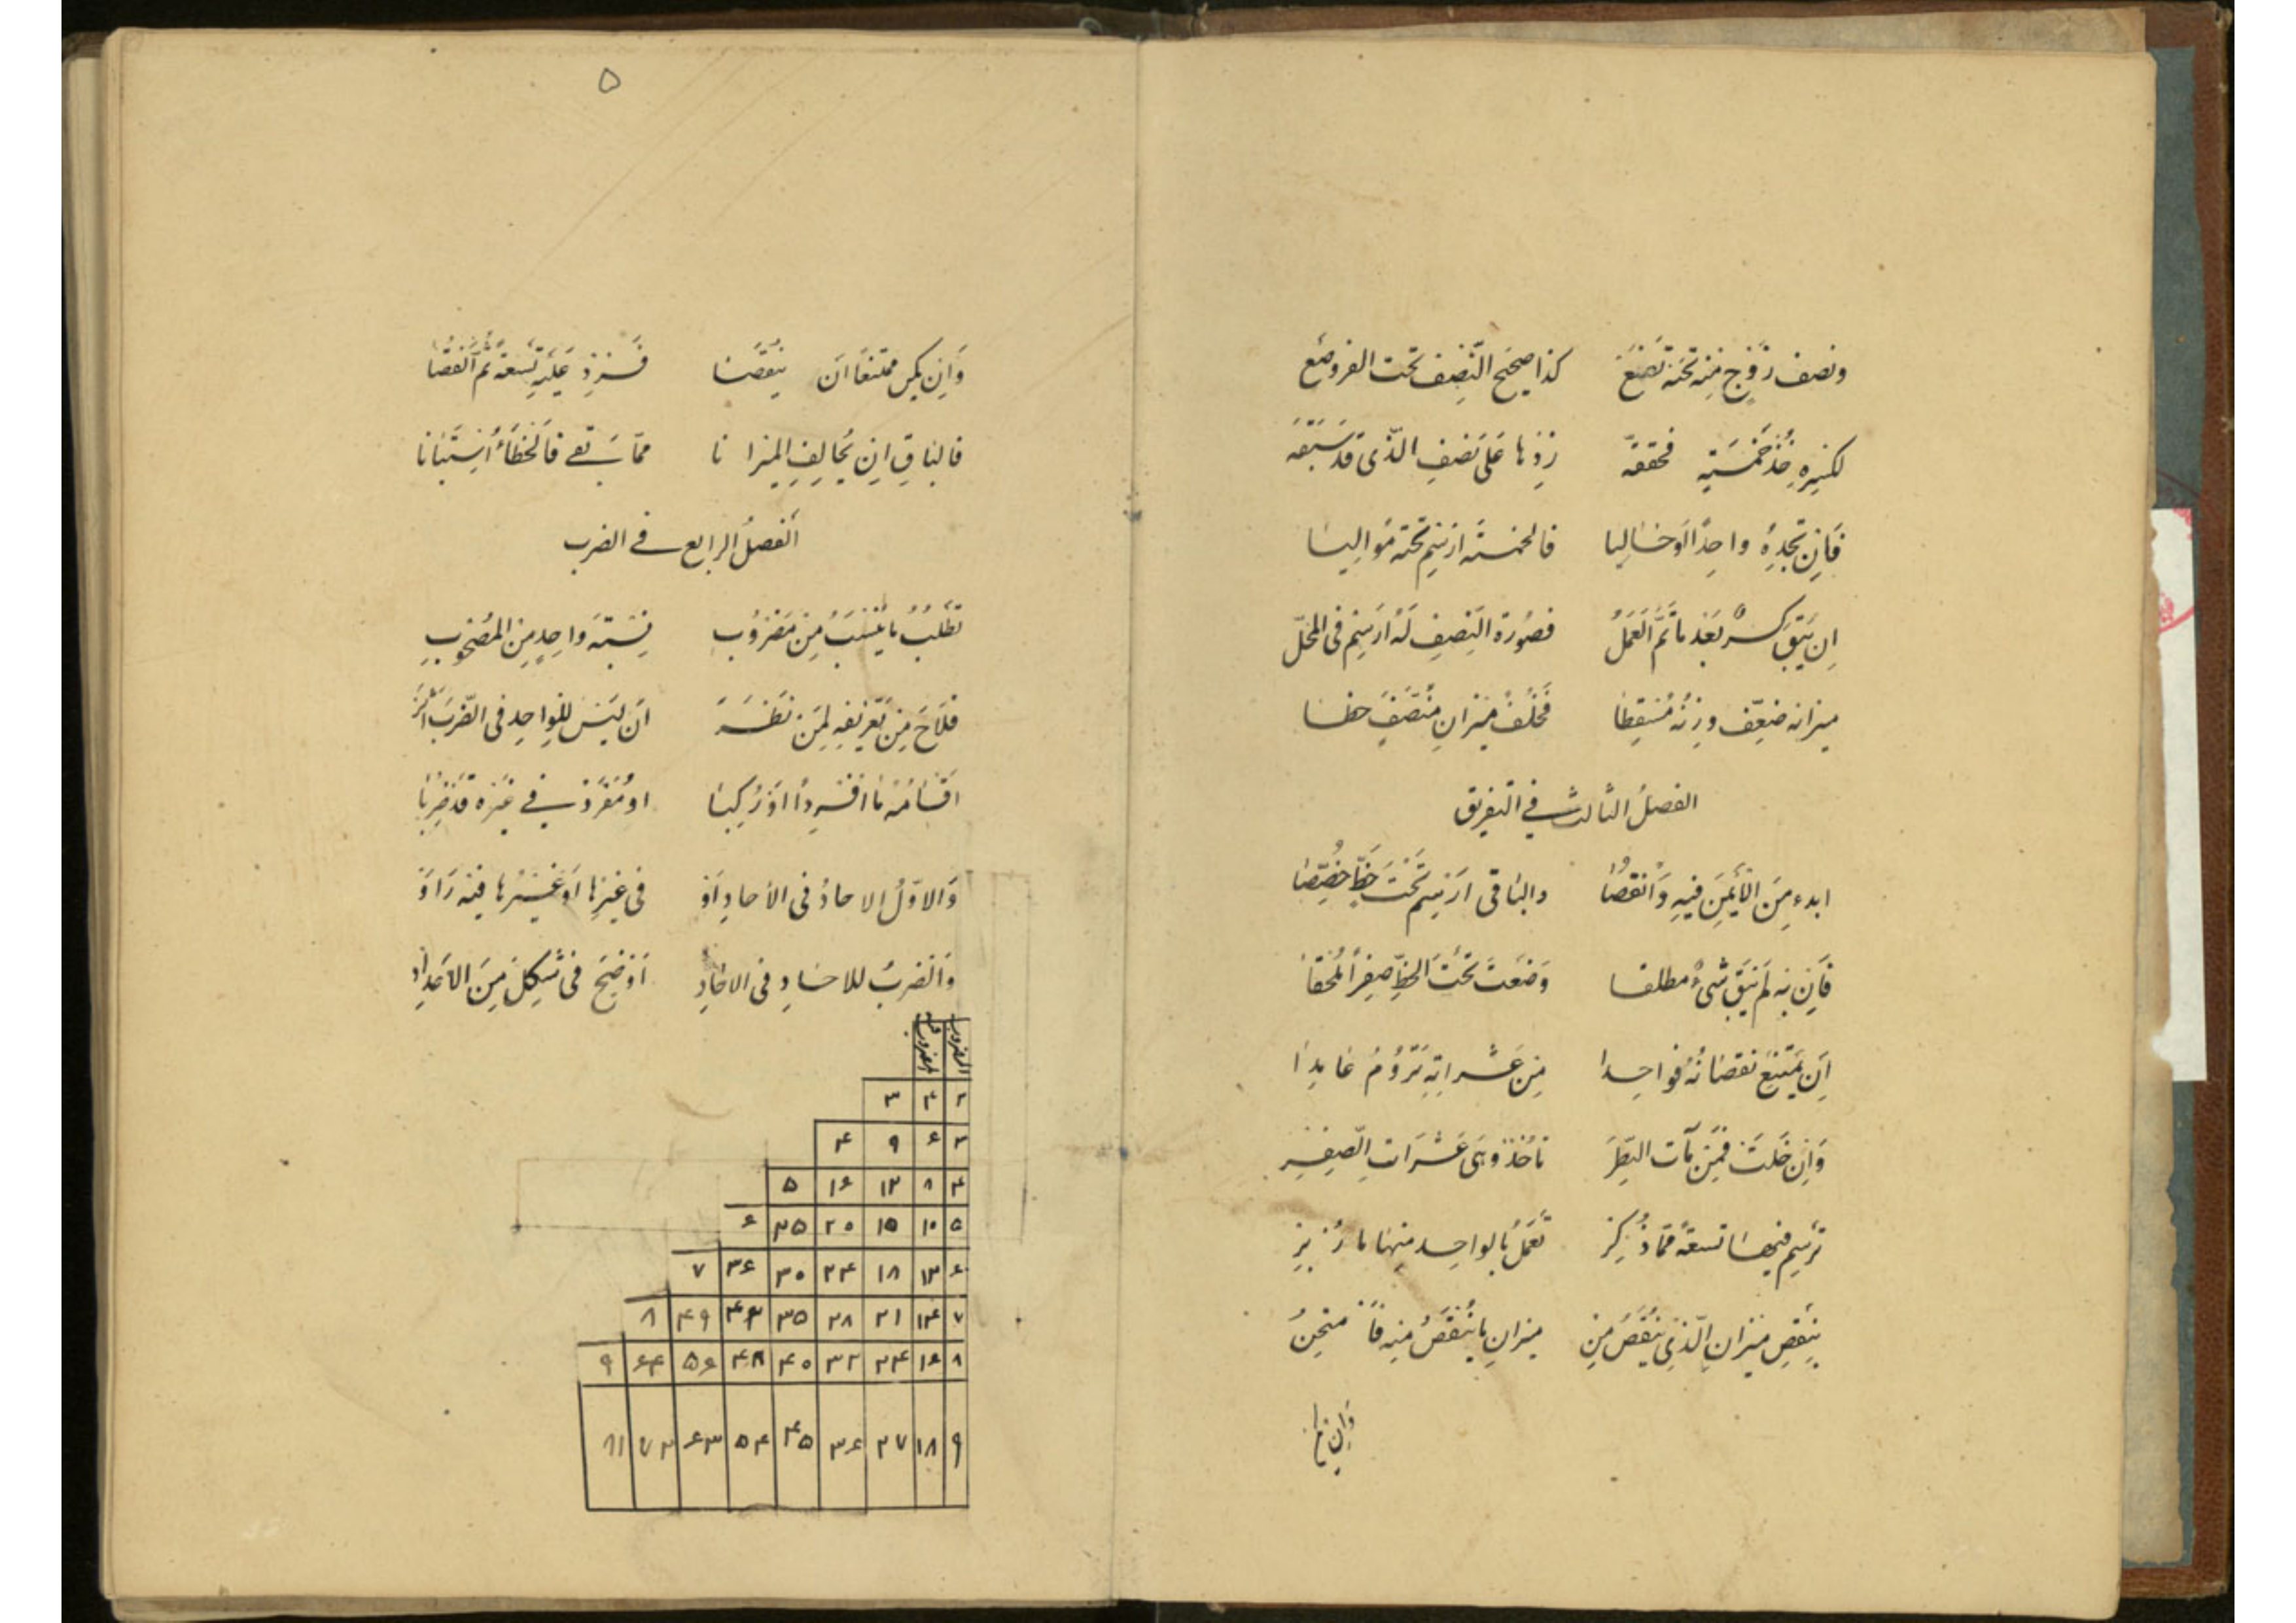 ونصف زَوْجٍ مِنْه تَحْتَهُ تَضَعْ كذا صحيح النّصف تحت الفرد ضَع
لكسرِهِ خُذْ خَمْسَةً محققه زِدْها عَلى نصْفِ الّذى قَدْ سَبَقَه
فَاِنْ تَجِدْهُ واحِداً اَوْ خاليا فالخمسة ارْسِم تَحْتَه مُواليا
اِن يَبْقَ كسرٌ بَعْدَ ما تَمَّ الْعَمَلُ فصُورة النّصفِ لَهُ ارْسِمْ فى المحَلّ
ميزانه ضعِّف وزِنْهُ مُسْقِطا فَخُلْفُ ميزانِ مُنَصَّفٍ خطا
الفصلُ الثالث فى التفريق
ابدء مِنَ الْاَيْمَنِ فيهِ وَانْقُصَا والباقى ارْسِمْ تَحْتَ خَطٍّ خُصِّصَا
فَاِن بِه لَمْ يَبْقَ شَىْءٌ مطلقا وَضَعْتَ تَحْتَ الخطِّ صِفْراً مُلْحَقا
اِن يَمْتَنِعْ نقصَانُهُ فواحدا مِن عَشَراتِهِ تَرُومُ عَايدا
وَاِن خَلَتْ فمِن مآت تاخُذ وهى عَشَرَات الصِفْر
ترسم فيها تسعةً ممّا ذُكِرْ تَعْمَلُ بالواحد منها ما زُبِرْ
يَنْقص ميْزان الّذى يُنْقَصُ مِنْ ميزانِ ما يُنْقَصُ منهِ فَامْتَحِنْ
وَاِن
۵
وَاِن يكن ممتنعاً ان ينْقصَا فَزِدْ عَلَيْهِ تِسْعَةً ثُمّ انْقُصَا
فالباقِ اِن يُخالِفِ الميزانا ممّا بَقى فَالخَطَأُ اسْتَبانا
الفصلُ الرابع فى الضرب
تَطْلُبُ ما يُنْسَبُ مِنْ مَضْرُوب نِسْبَتَه واحِدٍ مِنَ المَصْحُوبِ
فلَاحَ مِن تَعْريفِهِ لِمَنْ نَظَرَ اَن لَيْسَ للواحِدِ فى الضّرب اثر
اَقْسَامُهُ ما اُفْرِدا اوْ رُكِّبا او مُفْرَدٌ فى غيْره قَدْ ضُرِبا
وَالاوّلُ الاحادُ فى الآحادِ اَوْ فى غيْرِها اَوْ غيْرُها فيه رَاَوْ
وَالضربُ للاحادِ فى الاحادِ اَوْضِحَ فى شكلٍ مِنَ الاَعْدادِ
المضروب المضروب فيه
۲ ۴ ۳
۳ ۶ ۹ ۴
۴ ۸ ۱۲ ۱۶ ۵
۵ ۱۰ ۱۵ ۲۰ ۲۵ ۶
۶ ۱۲ ۱۸ ۲۴ ۳۰ ۳۶ ۷
۷ ۱۴ ۲۱ ۲۸ ۳۵ ۴۲ ۴۹ ۸
۸ ۱۶ ۲۴ ۳۲ ۴۰ ۴۸ ۵۶ ۶۴ ۹
۹ ۱۸ ۲۷ ۳۶ ۴۵ ۵۴ ۶۳ ۷۲ ۸۱